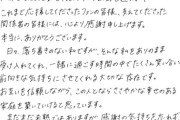 これまで応援してくださったファンの皆様、支えてくださった
関係者の皆様には、心より感謝申し上げます。
本当に、ありがとうございます。
日々、落ち着きのない私ですが、そんな私をありのまま
受け入れてくれ、一緒に過ごす時間の中でたくさん笑い
前向きな気持ちにさせてくれる大切な存在です。
お互いを信頼しながら、この人とならささやかな幸せのある
家庭を築いていけると思っています。
感謝の気持ちを忘れず